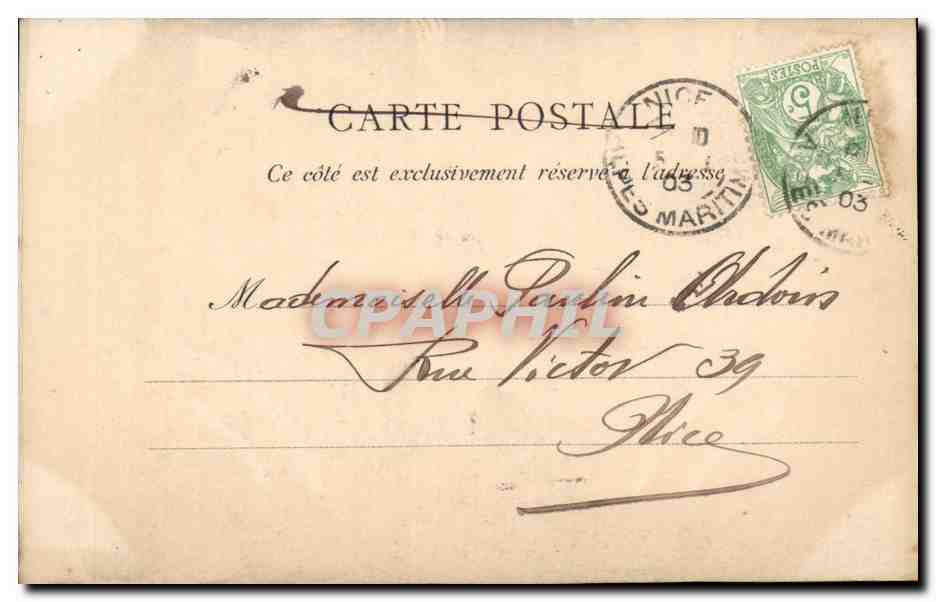 CARTE POSTALE
Ce côté est exclusivement réservé à l'adresse
POSTES
5
NICE
5
03
ALPES MARITIMES
03
Mademoiselle Pauline
CPAPHIL
Rue Victor 39
Nice